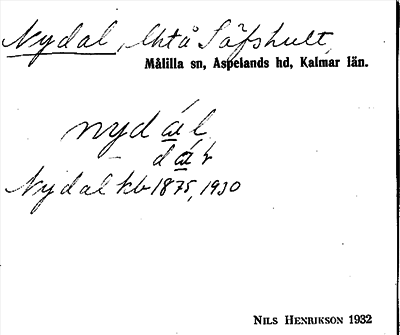 Nydal, Utå Säfshult,
Målilla sn, Aspelands hd, Kalmar län.
nydál
dár
Nydal kb 1875, 1930
NILS HENRIKSON 1932